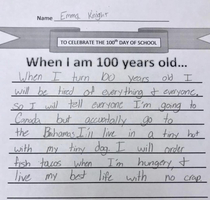 Name Emma Knight
TO CELEBRATE THE 100th DAY OF SCHOOL
When I am 100 years old...
When I turn 100 years old I
will be tired of everything & everyone,
so I will tell everyone I'm going to
Canada but accidentally go to
the Bahamas I'll live in a tiny hut
with my tiny dog. I will order
fish tacos when I'm hungry &
live my best life with no crap